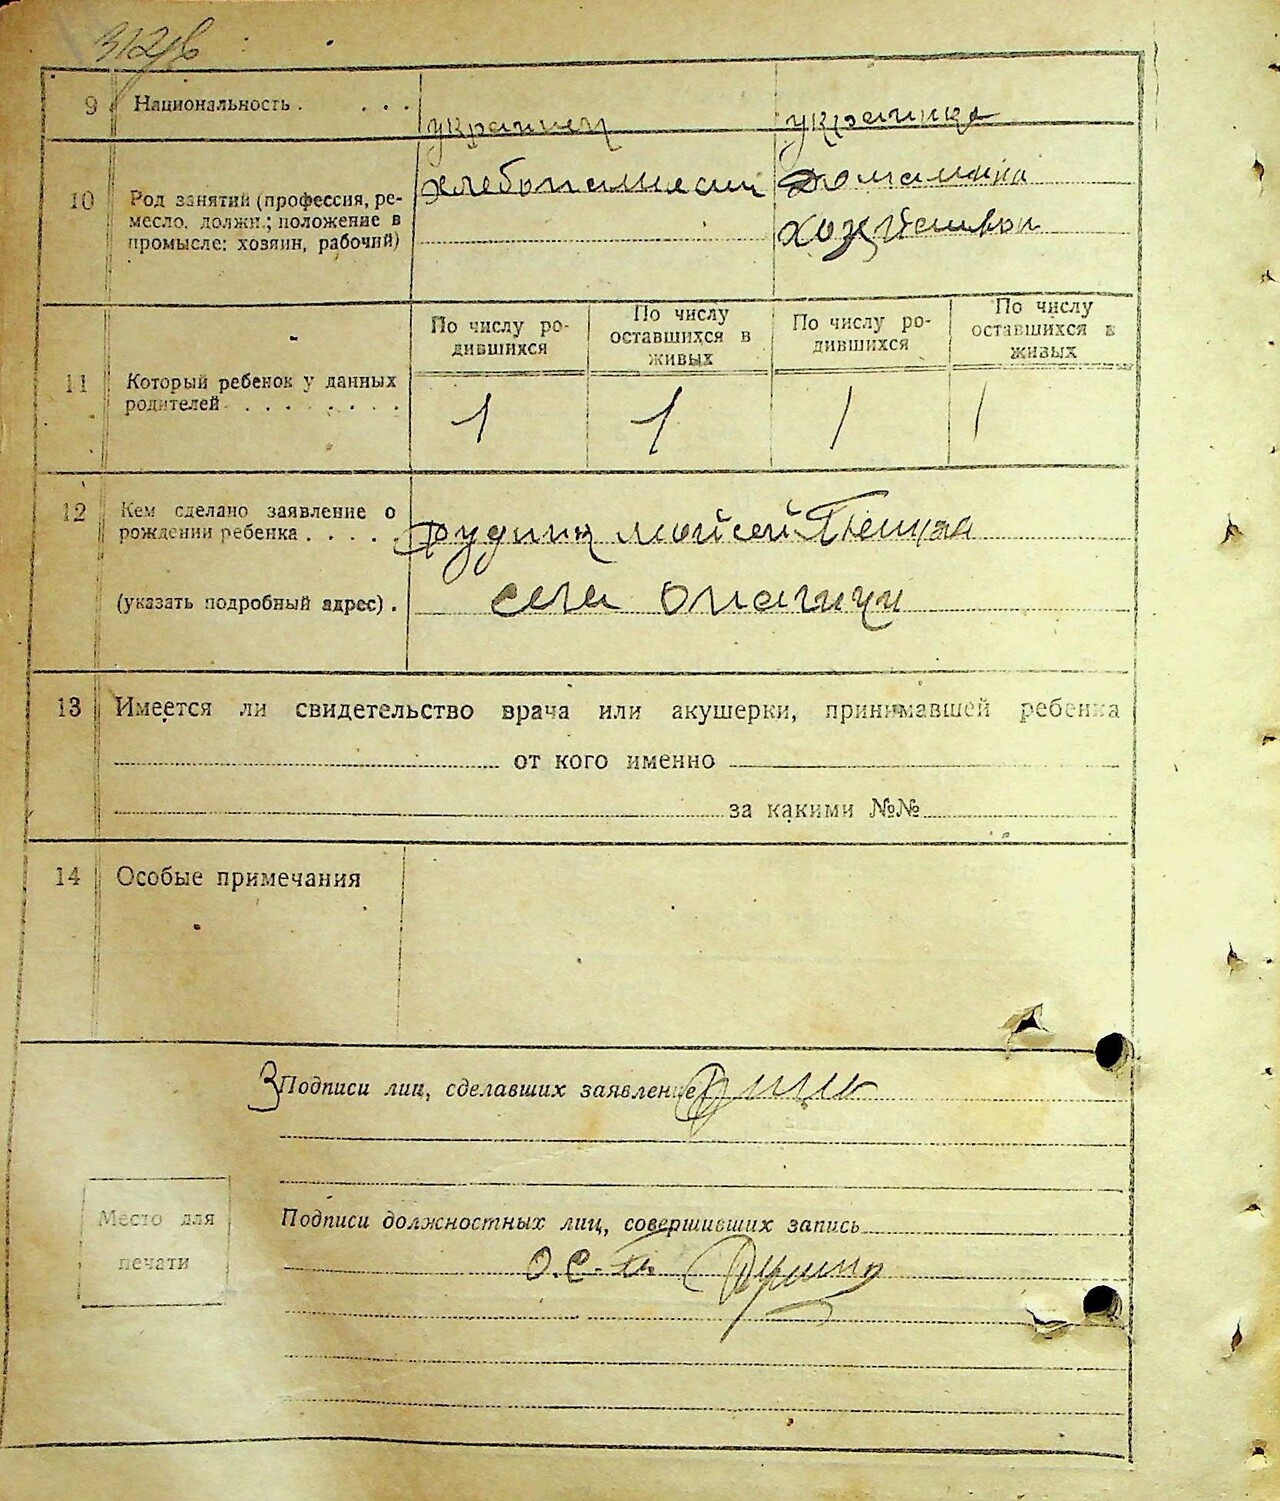 312
9 Национальность . . . . украинец украинка
10 Род занятий (профессия, ре-
месло, должн.; положение в
промысле: хозяин, рабочий)
хлебопашест домашня
хозяйство
По числу ро-
дившихся
По числу
оставшихся в
живых
По числу ро-
дившихся
По числу
оставшихся в
живых
11 Который ребенок у данных
родителей . . . . . . . .
1 1 1 1
12 Кем сделано заявление о
рождении ребенка . . . .
Мойсей
(указать подробный адрес) .
село
13 Имеется ли свидетельство врача или акушерки, принимавшей ребенка
от кого именно
за какими №№
14 Особые примечания
Подписи лиц, сделавших заявление
Место для
печати
Подписи должностных лиц, совершивших запись